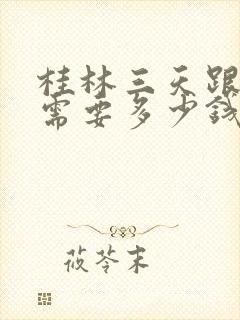 桂林三天跟
需要多少钱
莜苓末